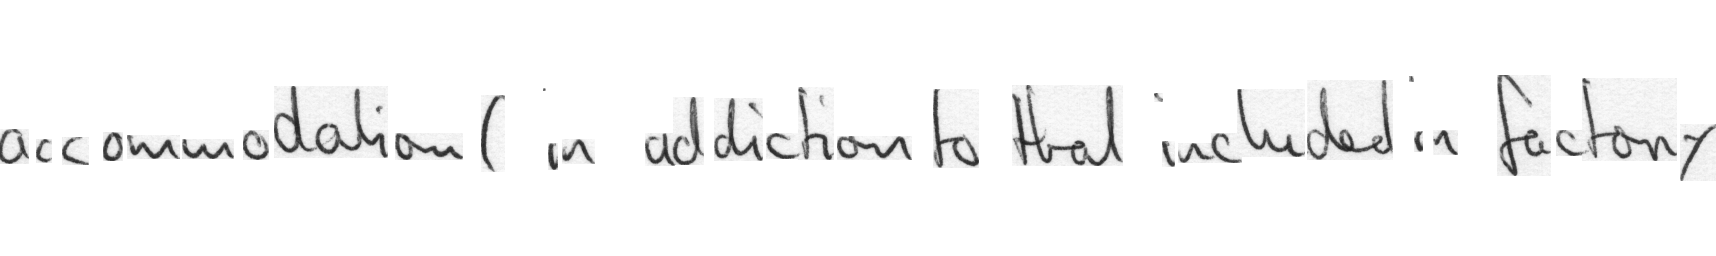 accommodation ( in addiction to that included in factory